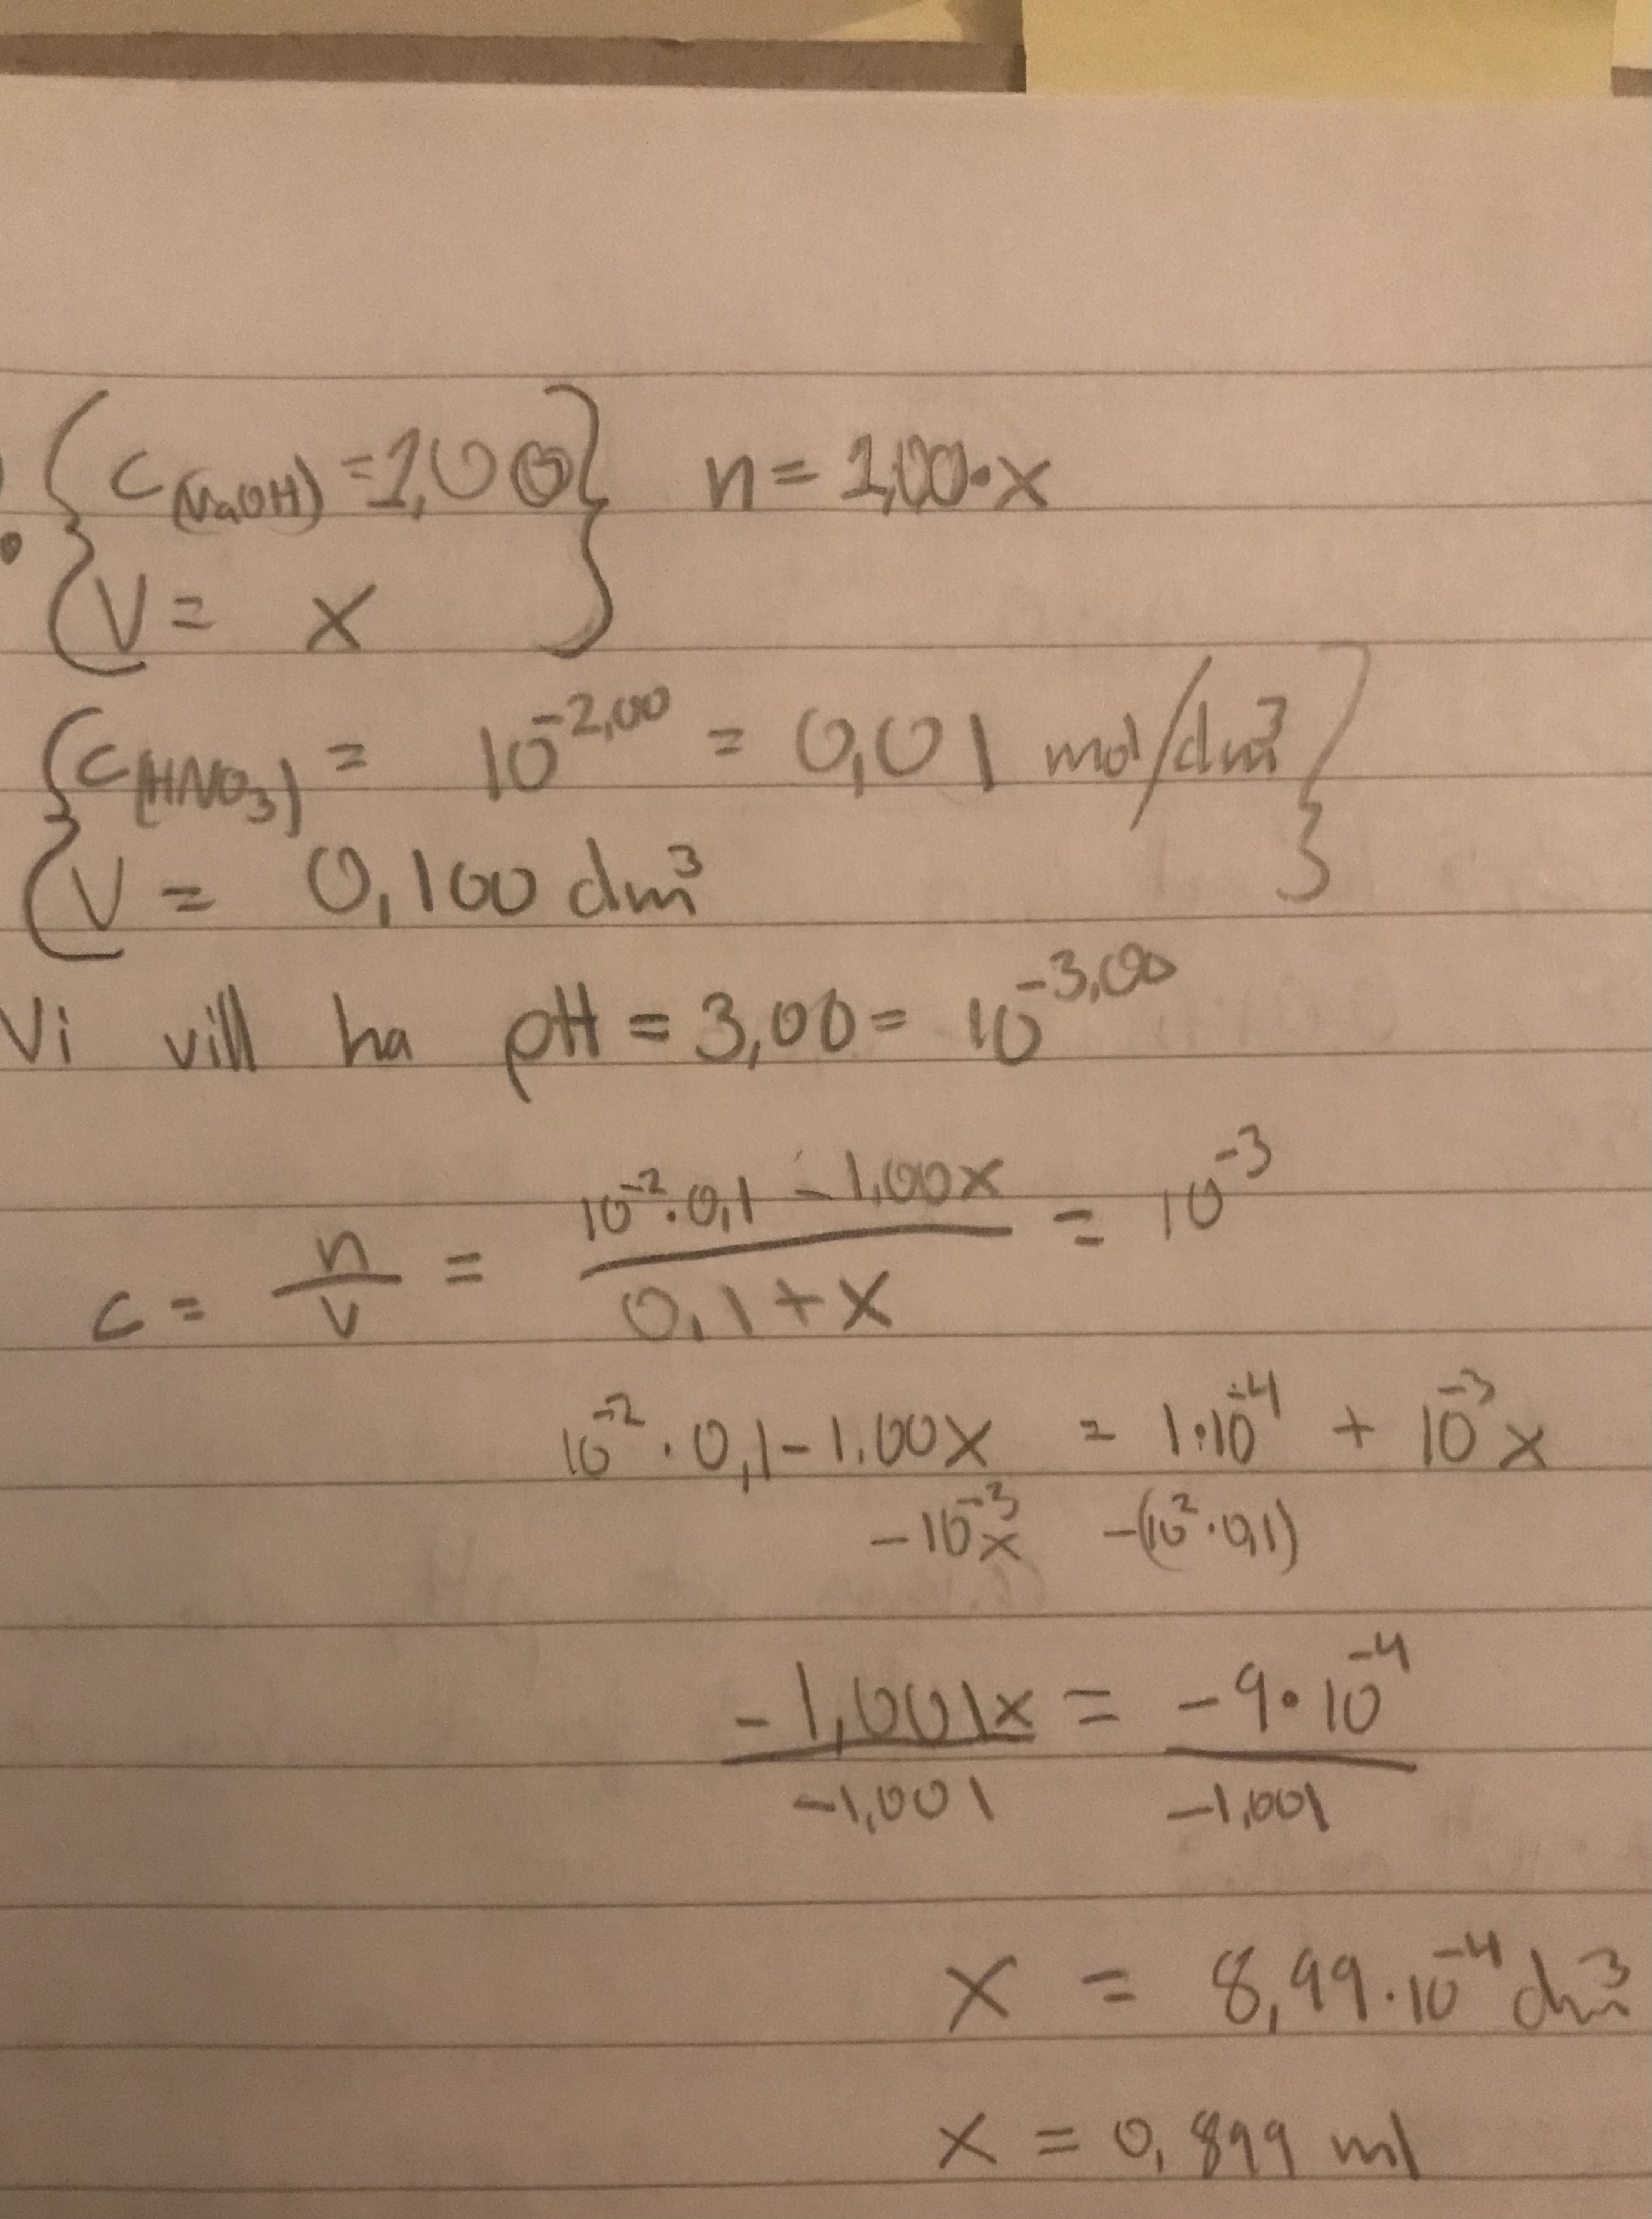 C(NaOH) = 1,00 n = 1,00·x
V = x
C(HNO₃) = 10⁻²,⁰⁰ = 0,01 mol/dm³
V = 0,100 dm³
Vi vill ha pH = 3,00 = 10⁻³,⁰⁰
c = n/V = (10⁻²·0,1 - 1,00x)/(0,1+x) = 10⁻³
10⁻²·0,1 - 1.00x = 1·10⁻⁴ + 10⁻³x
-10⁻³x -(10²·0,1)
-1,001x/-1,001 = -9·10⁻⁴/-1,001
x = 8,99·10⁻⁴ dm³
x = 0,899 ml